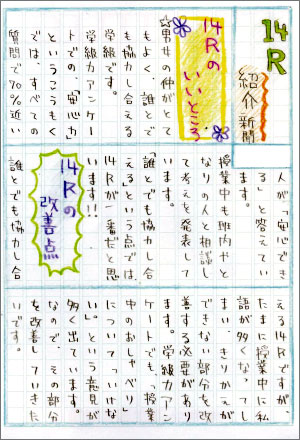 14R
紹介新聞
14Rの
いいところ
☆男女の仲がとて
もよく、誰とで
も協力し合える
学級です。
学級力アンケー
トでの、「安心力」
というこうもく
では、すべての
質問で70%近い
人が「安心でき
る」と答えてい
ます。
授業中も班内やと
なりの人と相談し
て考えも発表して
「誰とでも協力し合
える」という点では、
14Rが一番だと思
います!!
14Rの
改善点
誰とでも協力し合
える14Rですが、
たまに授業中に私
語が多くなってし
まい、きりかえが
できない部分を改
善する必要があり
ます。学級力アン
ケートでも、「授業
中のおしゃべり
についていけな
い。」という意見が
多く出ています。
なので、その部分
を改善していきた
いです。